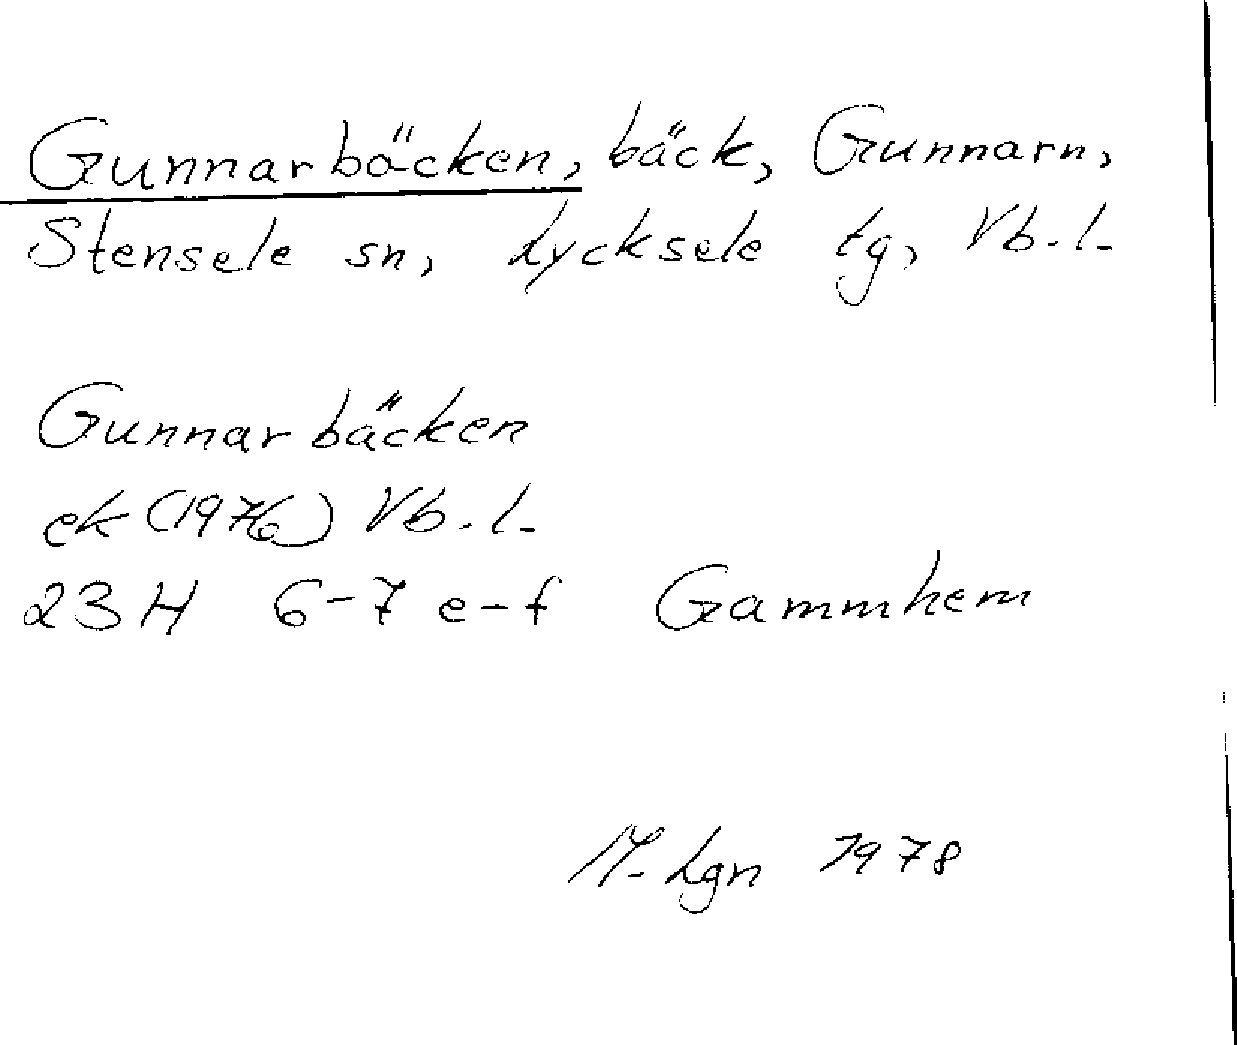 Gunnarbäcken, bäck, Gunnarn,
Stensele sn, Lycksele tg, Vb. l.
Gunnarbäcken
ek (1976) Vb. l.
23 H 6-7 e-f Gammhem
M. Lgn 1978